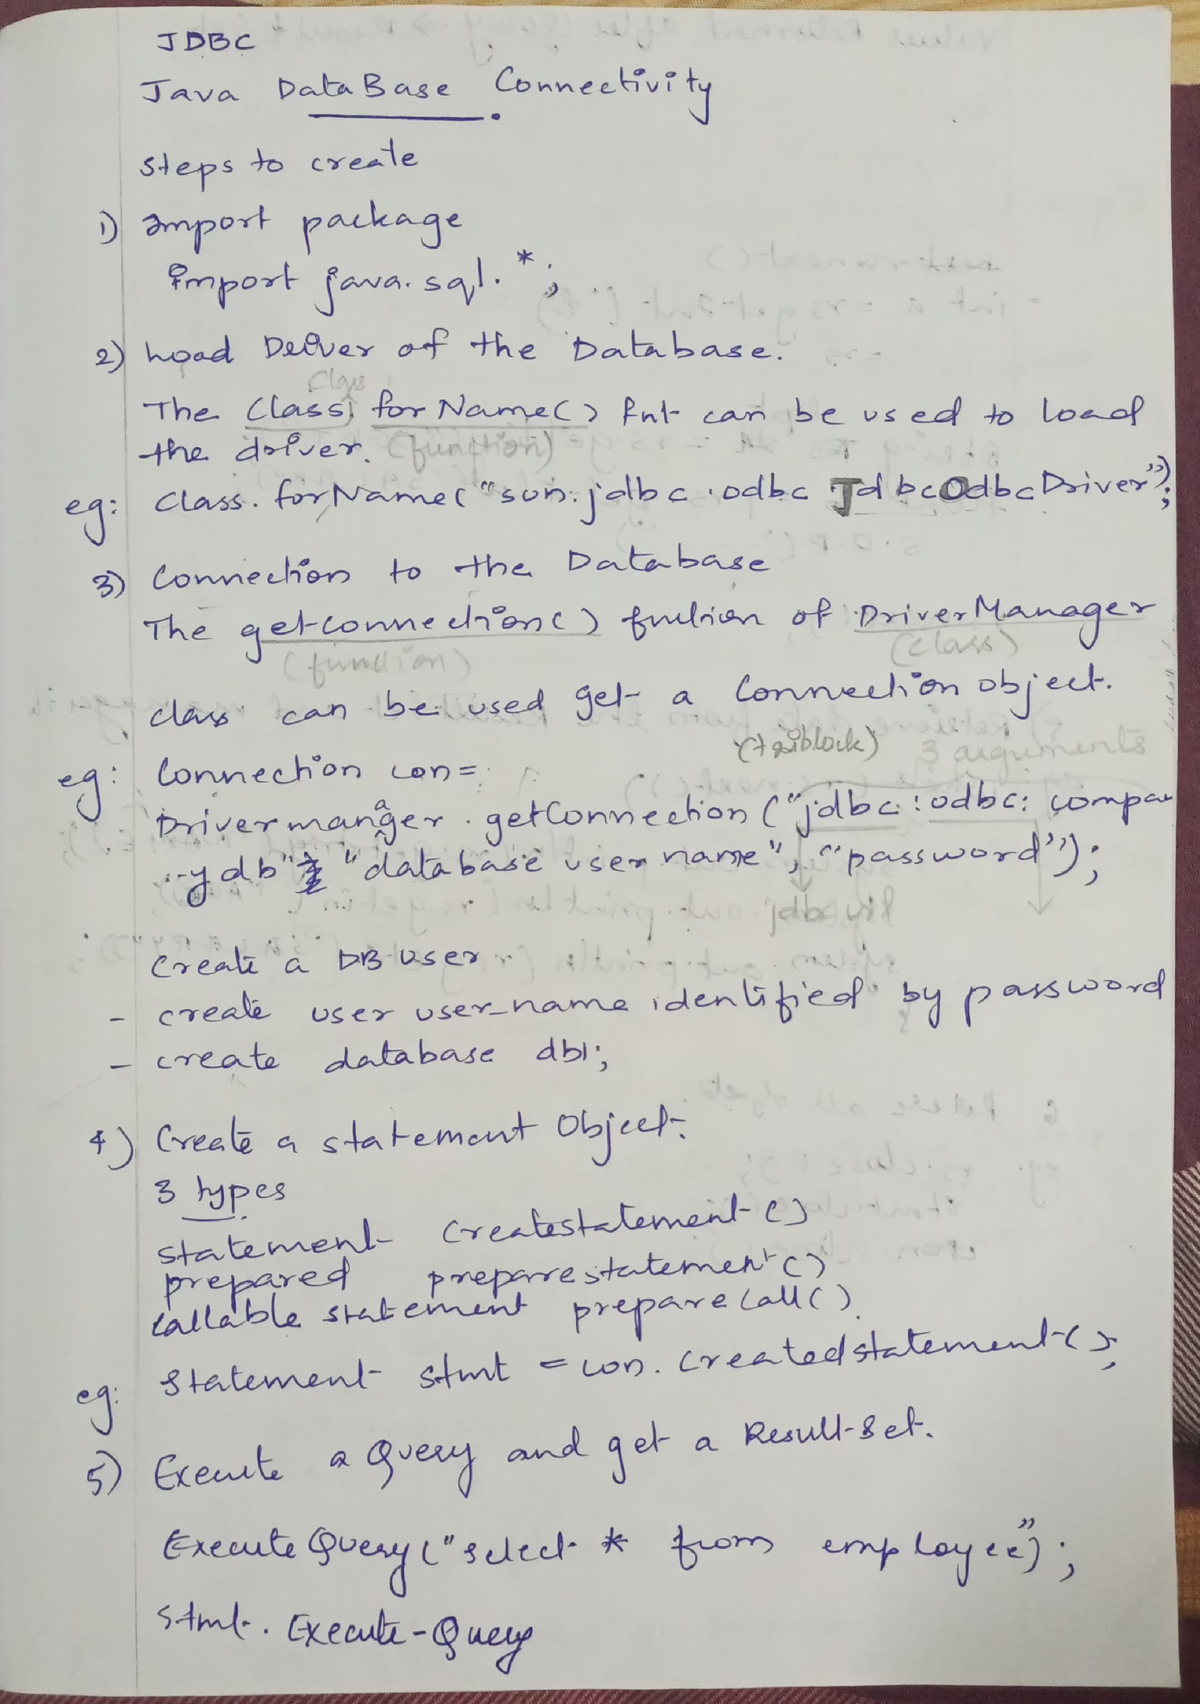 JDBC
Java DataBase Connectivity
steps to create
1) Import package
import java.sql.*;
2) Load Driver of the Database.
Class
The Class, forName() fnt can be used to load
the driver. (function)
eg: Class.forName("sun.jdbc.odbc JdbcOdbcDriver");
3) Connection to the Database
The getconnection() fnction of DriverManager
(function) (class)
class can be used get a Connection object.
3 arguments
eg: Connection con=
Drivermanager.getConnection("jdbc:odbc: compan
ydb", "database user name", "password");
jdbc url
Create a DB user
- create user user_name identified by password
- create database db1;
4) Create a statement Object.
3 types
statement createstatement()
prepared preparestatement()
callable statement prepare call()
eg: Statement stmt = con.createdstatement();
5) Execute a Query and get a Result-Set.
Execute Query("select * from employee");
stmt. Execute-Query